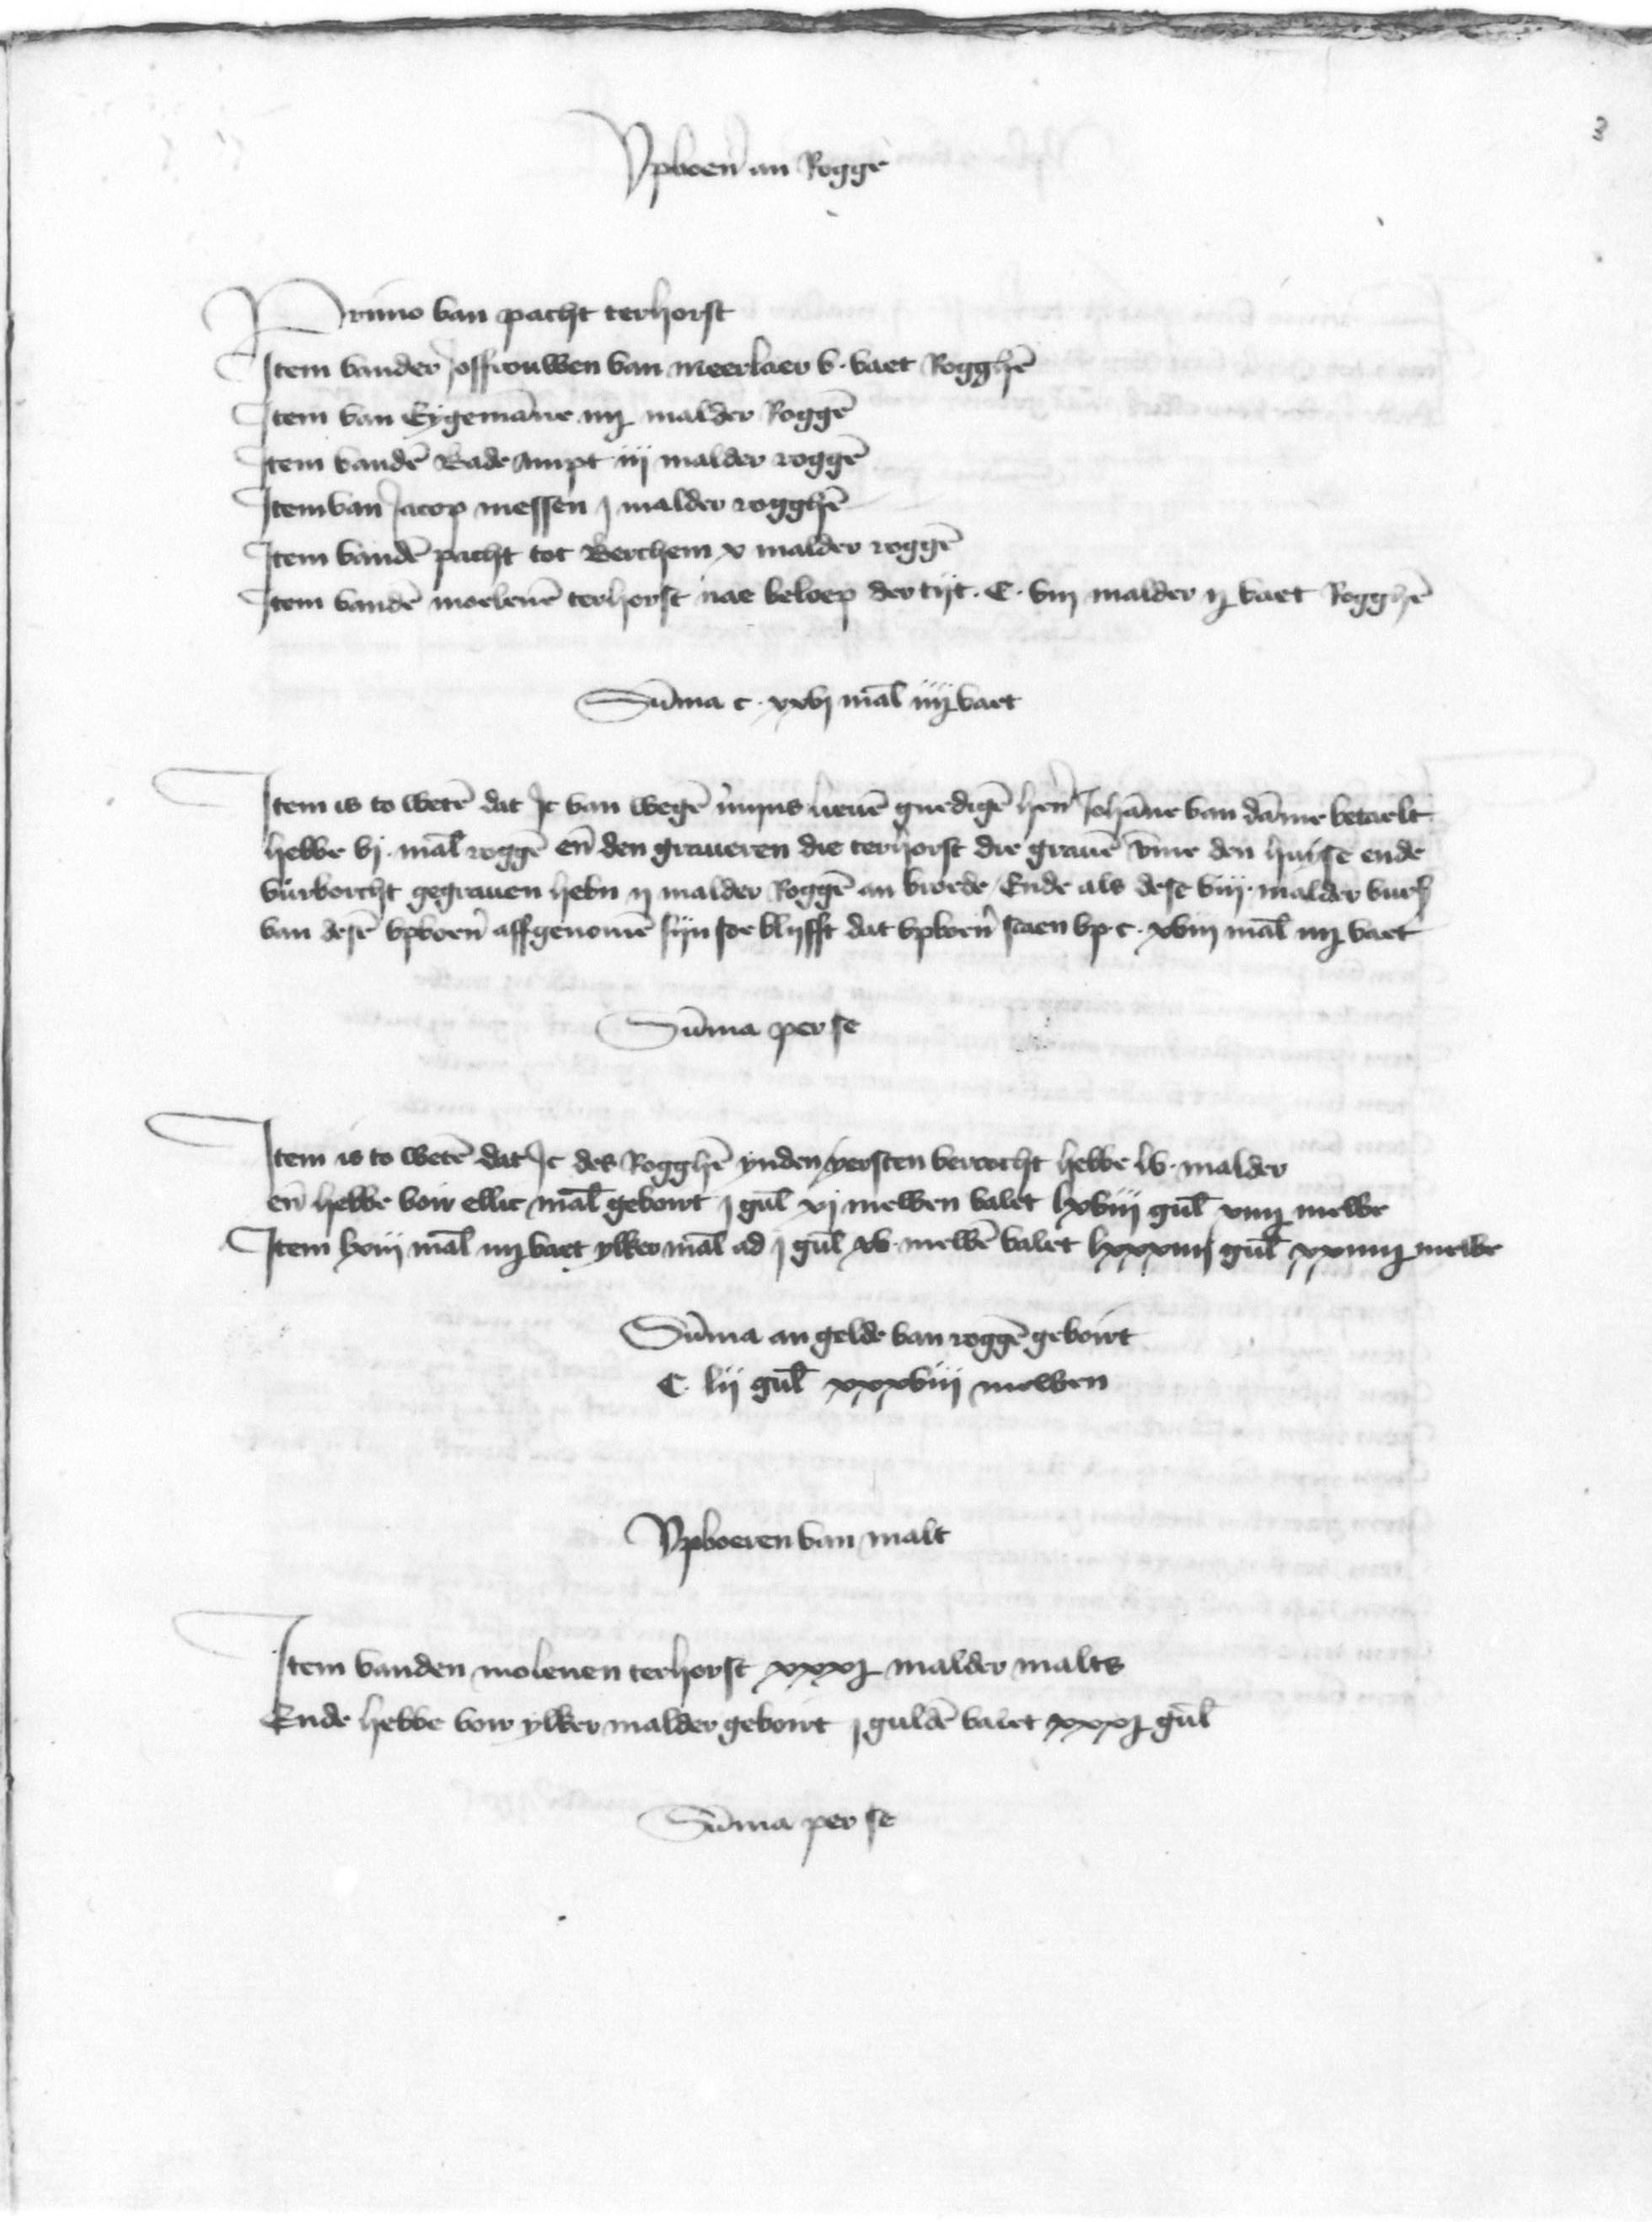 3
Vpboer̄ an Rogge
Primo van pacht terhorst
Item vander Joffrouwen van meerlaer v. vaet Rogghē
Item van Eygemāne iiij malder Roggē
Item vandē Bade Ampt iij malder roggē
Item van Jacop messen j malder rogghē
Item vandē pacht tot Berchem x malder roggē
Item vandē moelenē terhorst nae beloep der tijt. C. viij malder ij vaet Rogghē
Sūma c. xxvj māl iiij vaet
Item is to wetē dat Ic van wegē mijns lieuē gnedigē her̄ Johāne van dāme betaelt
hebbe vj. māl roggē en̄ den graueren die terhorst die grauē vme den huise ende
vurborcht gegrauen hebn ij malder Roggē an broede Ende als dese viij. malder vurs
van desē vpboer̄ affgenomē sijn soe blijfft dat vpboer̄ staen vp c. xviij māl iiij vaet
Sūma per se
Item is to wetē dat Ic des Rogghē ynden yersten vercocht hebbe lv. malder
en̄ hebbe voir ellic māl geboirt j gul̄ xj mewen valet lxviij gul̄ xiiij mewe
Item lxiij māl iiij vaet ylker māl ad j gul̄ xv. mewē valet lxxxiiij gul̄ xxiiij mewe
Sūma an gelde van roggē geboirt
C. lij gul̄ xxxviij mewen
Vpboeren van malt
Item vanden molenen terhorst xxxij malder malts
Ende hebbe voir ylker malder geboirt j guldē valet xxxij gul̄
Sūma per se